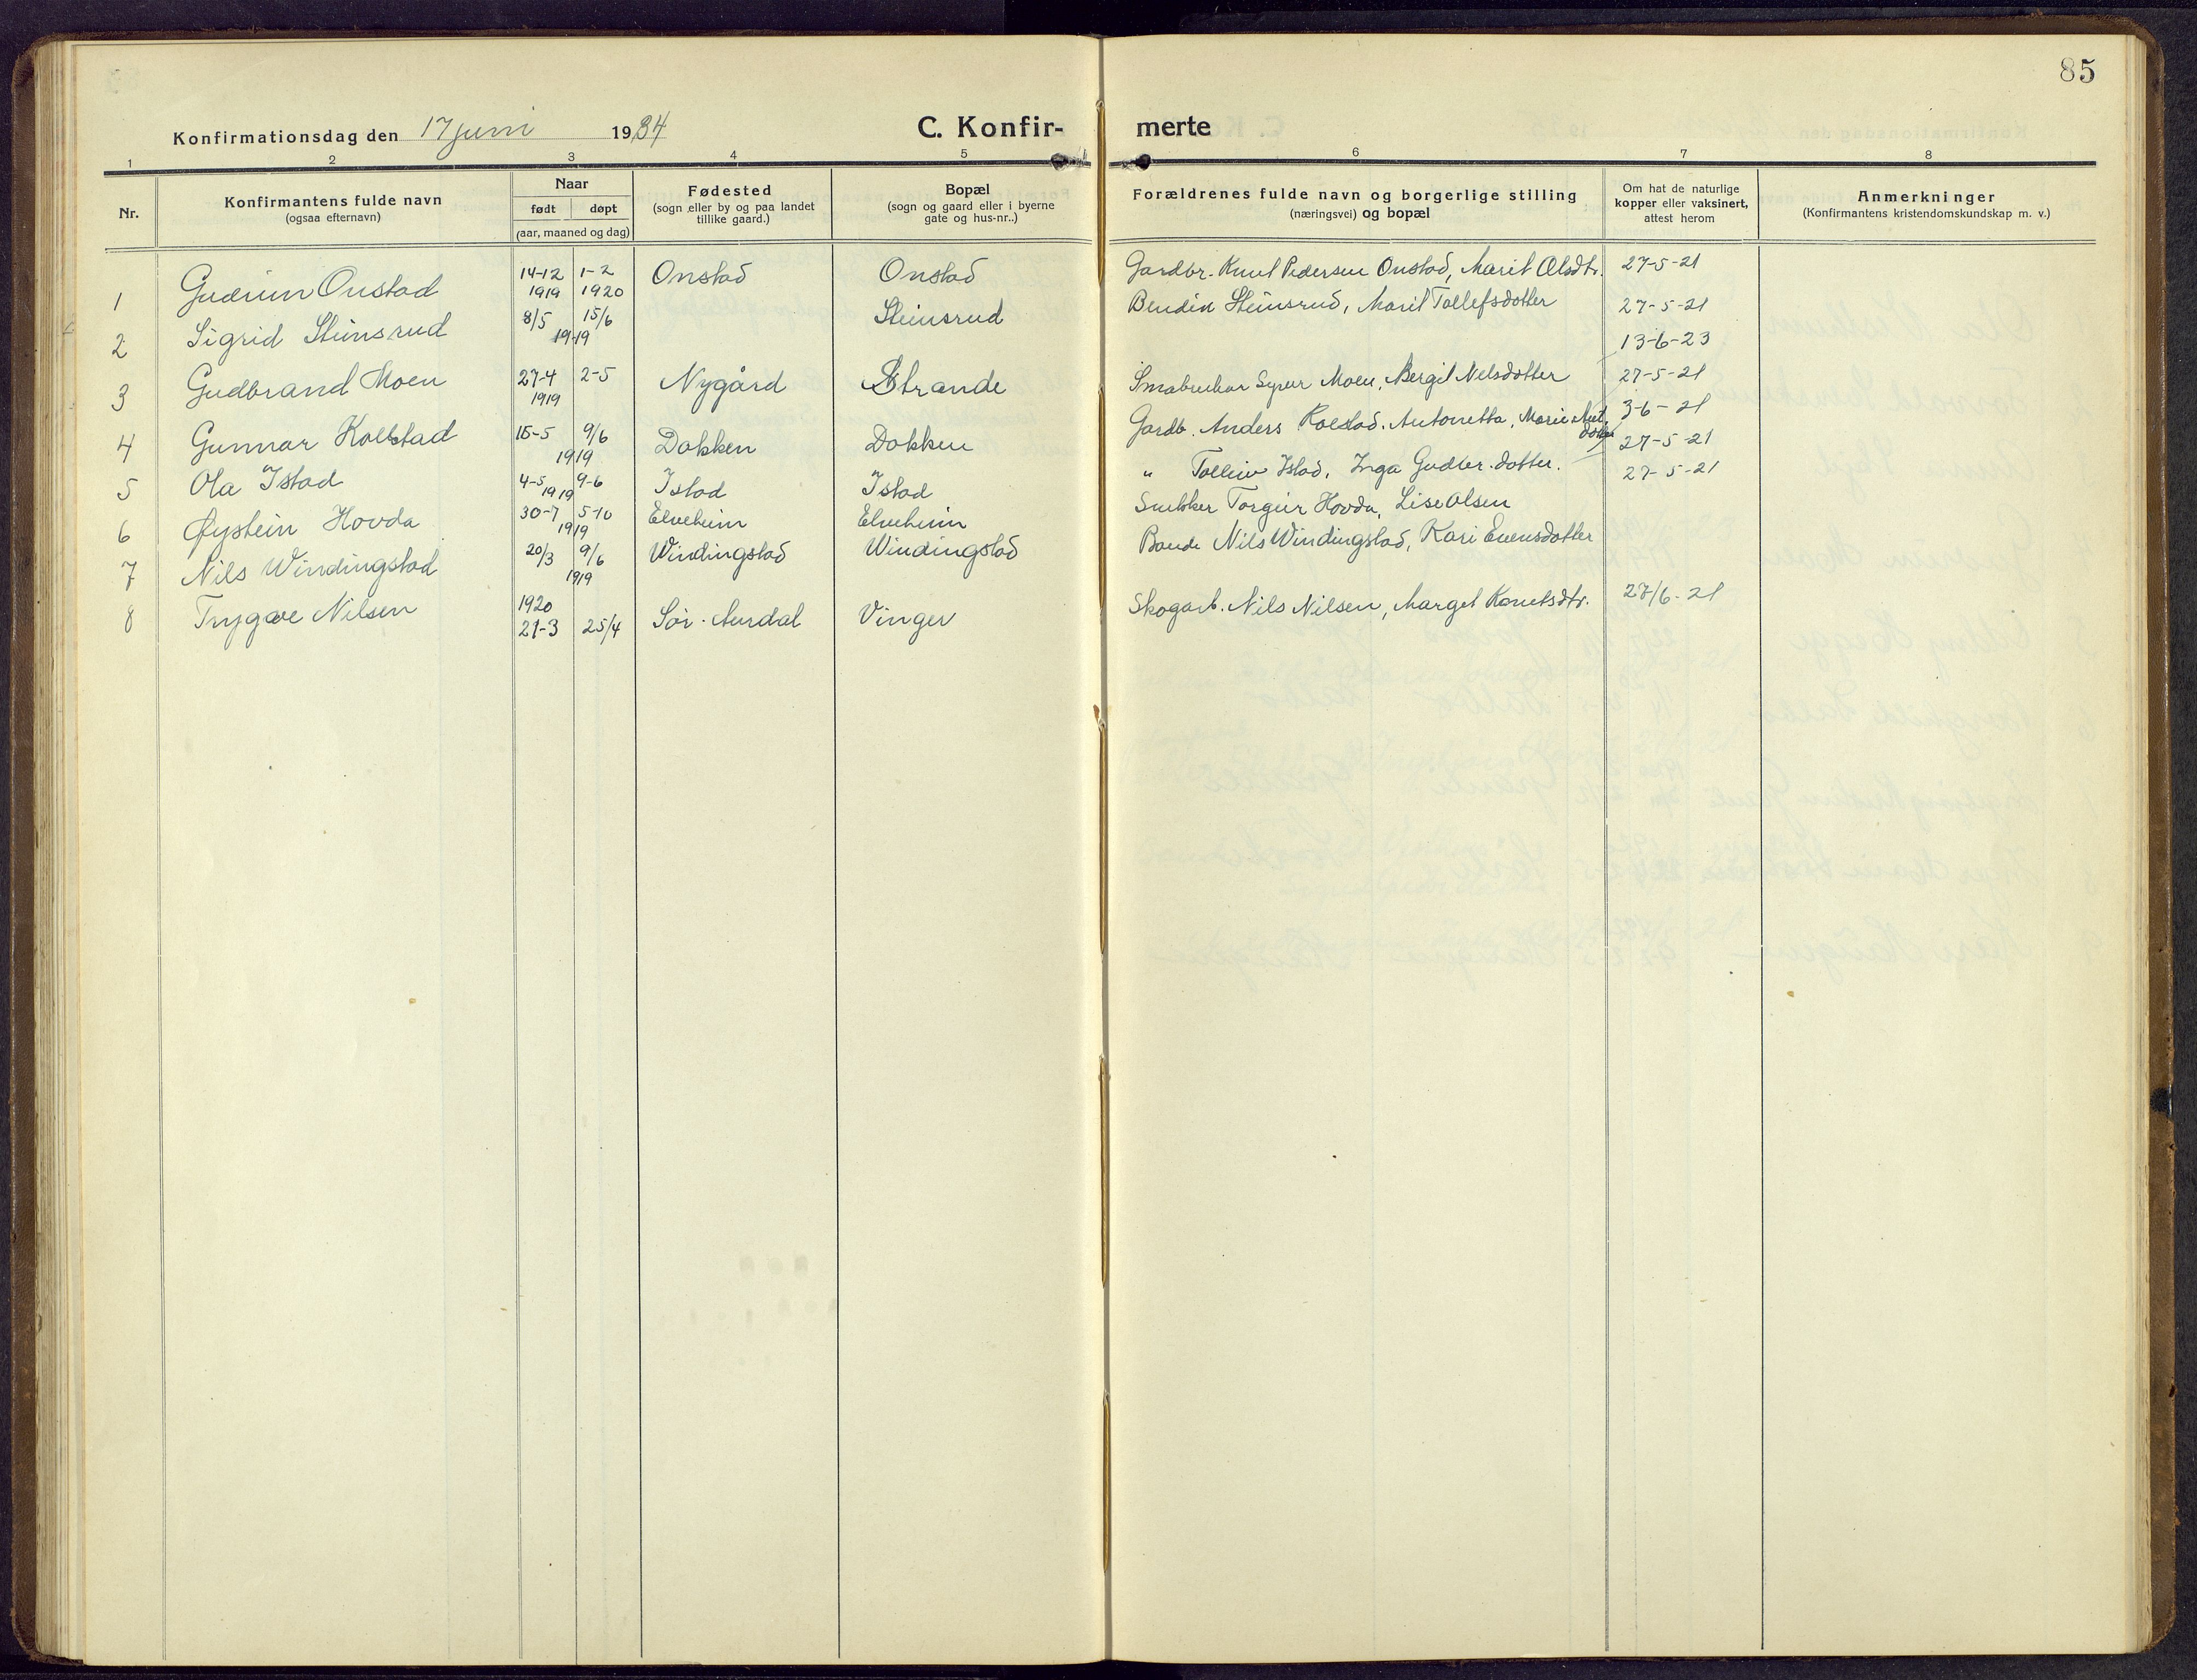 85
Konfirmationsdag den 17 juni 1934
C. Konfir-
merte
1 2 3 4 5 6 7 8
Nr.
Konfirmantens fulde navn
(ogsaa efternavn)
Naar
født døpt
(aar, maaned og dag)
Fødested
(sogn eller by og paa landet
tillike gaard.)
Bopæl
(sogn og gaard eller i byerne
gate og hus-nr..)
Forældrenes fulde navn og borgerlige stilling
(næringsvei) og bopæl
Om hat de naturlige
kopper eller vaksinert,
attest herom
Anmerkninger
(Konfirmantens kristendomskundskap m. v.)
1 Gudrun Onstad 14-12 1919 1-2 1920 Onstad Onstad Gardbr. Knut Pedersen Onstad, Marit Olsdtr. 27-5-21
2 Sigrid Steinsrud 8/5 15/6 1919 Steinsrud Bendik Steinsrud, Marit Tollefsdotter 27-5-21
13-6-23
3 Gudbrand Moen 27-4 1919 2-5 Nygård Strande Småbrukar Syver Moen, Bergit Nilsdotter 27-5-21
4 Gunnar Kolstad 15-5 9/6 1919 Dokken Dokken Gardb. Anders Kolstad. Antonetta, Marie dotter 3-6-21
5 Ola Istad 4-5 9-6 1919 Istad Istad " Tolleiv Istad, Inga Gudbr.dotter. 27-5-21
6 Øystein Hovda 30-7 5-10 1919 Elveheim Elveheim Snikker Torgeir Hovda, Lise Olsen 27-5-21
7 Nils Windingstad 20/3 9/6 1919 Windingstad Windingstad Bonde Nils Windingstad, Kari Evensdotter
8 Trygve Nilsen 1920 21-3 25/4 Sør-Aurdal Vinger Skogarb. Nils Nilsen, Marget Knutsdtr. 27/6-21